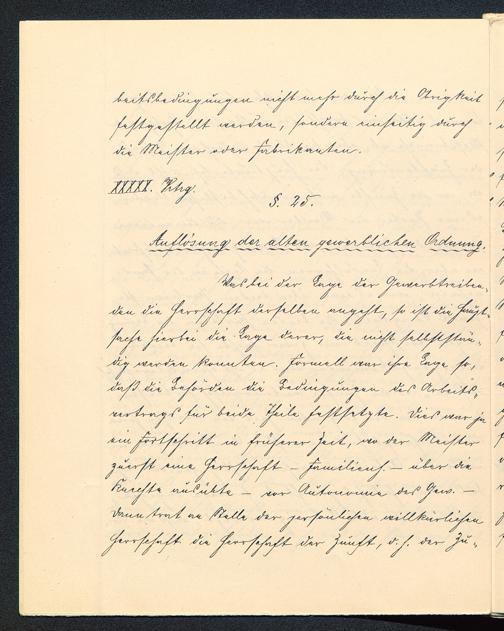 beitsbedingungen nicht mehr durch die Obrigkeit
festgestellt werden, sondern einseitig durch
die Meister oder Fabrikanten.
XXXXX. Vtrg.
§. 25.
Auflösung der alten gewerblichen Ordnung.
Was bei der Lage der Gewerbtreiben-
den die Herrschaft derselben angeht, so ist die Haupt-
sache hierbei die Lage derer, die nicht selbststän-
dig werden konnten. Formell war ihre Lage so,
daß die Behörden die Bedingungen des Arbeits-
vertrags für beide Theile festsetzte. Dies war ja
ein Fortschritt in früherer Zeit, wo der Meister
zuerst eine Herrschaft – Familienh. – über die
Knechte ausübte – vor Autonomie des Gew. –
Dann trat an Stelle der persönlichen willkürlichen
Herrschaft die Herrschaft der Zunft, d. h. der Zu-